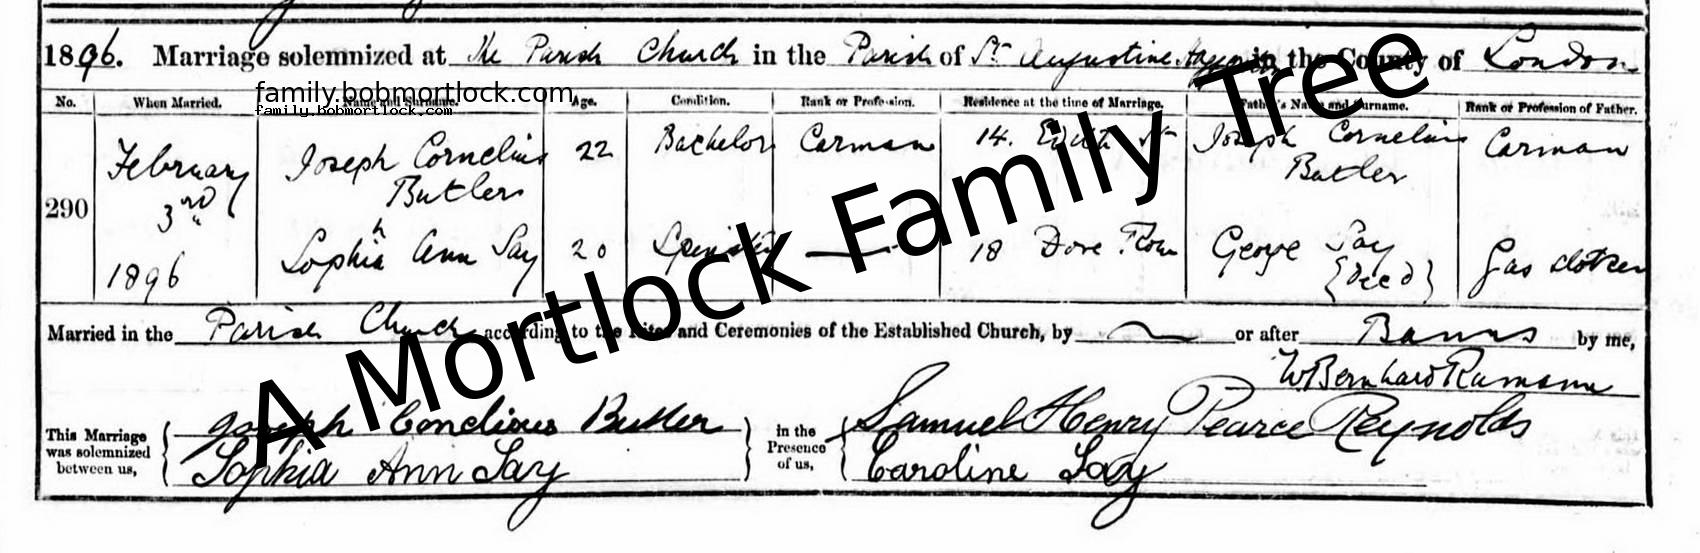 1896. Marriage solemnized at The Parish Church in the Parish of St Augustine in the County of London
family.bobmortlock.com
No. When Married. Name and Surname. Age. Condition. Rank or Profession. Residence at the time of Marriage. Father's Name and Surname. Rank or Profession of Father.
family.bobmortlock.com
290 February 3rd 1896 Joseph Cornelius Butler 22 Bachelor Carman 14. Edith St Joseph Cornelius Butler Carman
Sophia Ann Say 20 Spinster 18 Dove Row George Say {Decd} Gas stoker
Married in the Parish Church according to the Rites and Ceremonies of the Established Church, by or after Banns by me,
W Bernhard
This Marriage was solemnized between us, Joseph Conelious Butler in the Presence of us, Samuel Henry Pearce Reynolds
Sophia Ann Say Caroline Say
A Mortlock Family Tree